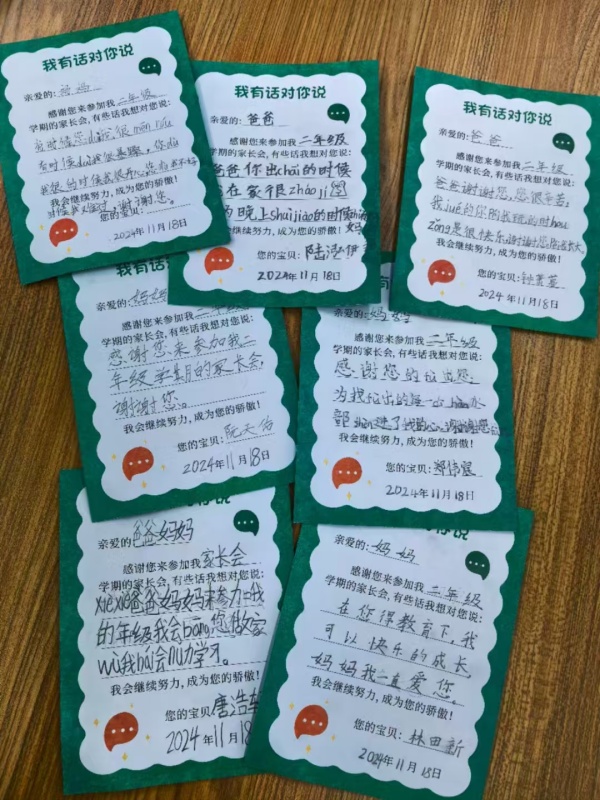 我有话对你说
亲爱的:妈妈
感谢您来参加我二年级
学期的家长会,有些话我想对您说:
我会继续努力,成为您的骄傲!
谢谢您。
您的宝贝:
2024年11月18日
我有话对你说
亲爱的:爸爸
感谢您来参加我二年级
学期的家长会,有些话我想对您说:
爸爸你出chāi的时候
在家很zháojí
晚上shuìjiào的时候
我会继续努力,成为您的骄傲!
您的宝贝:陆滢伊
2024年11月18日
我有话对你说
亲爱的:爸爸
感谢您来参加我二年级
学期的家长会,有些话我想对您说:
爸爸谢谢您,您很辛苦,
我jué的你的我玩的时hou
zǒng是很快乐,谢谢您
我会继续努力,成为您的骄傲!
您的宝贝:
2024年11月18日
我有话对你说
亲爱的:妈妈
感谢您来参加我二年级
学期的家长会,有些话我想对您说:
感谢您来参加我二
年级学期的家长会,
谢谢您。
我会继续努力,成为您的骄傲!
您的宝贝:阮天佑
2024年11月18日
亲爱的:妈妈
感谢您来参加我二年级
学期的家长会,有些话我想对您说:
感谢您的
为我付出的每一
我会继续努力,成为您的骄傲!
您的宝贝:郑伟宸
2024年11月18日
你说
亲爱的:爸爸妈妈
感谢您来参加我家长会
学期的家长会,有些话我想对您说:
xièxiè爸爸妈妈来参加我
的年级我会bāng您做家
wù我hái会nǔ力学习。
我会继续努力,成为您的骄傲!
您的宝贝:唐浩
2024年11月18
有话对你说
亲爱的:妈妈
感谢您来参加我二年级
学期的家长会,有些话我想对您说:
在您得教育下,我
可以快乐的成长,
妈妈我一直爱您。
我会继续努力,成为您的骄傲!
您的宝贝:林田新
2024年11月18日